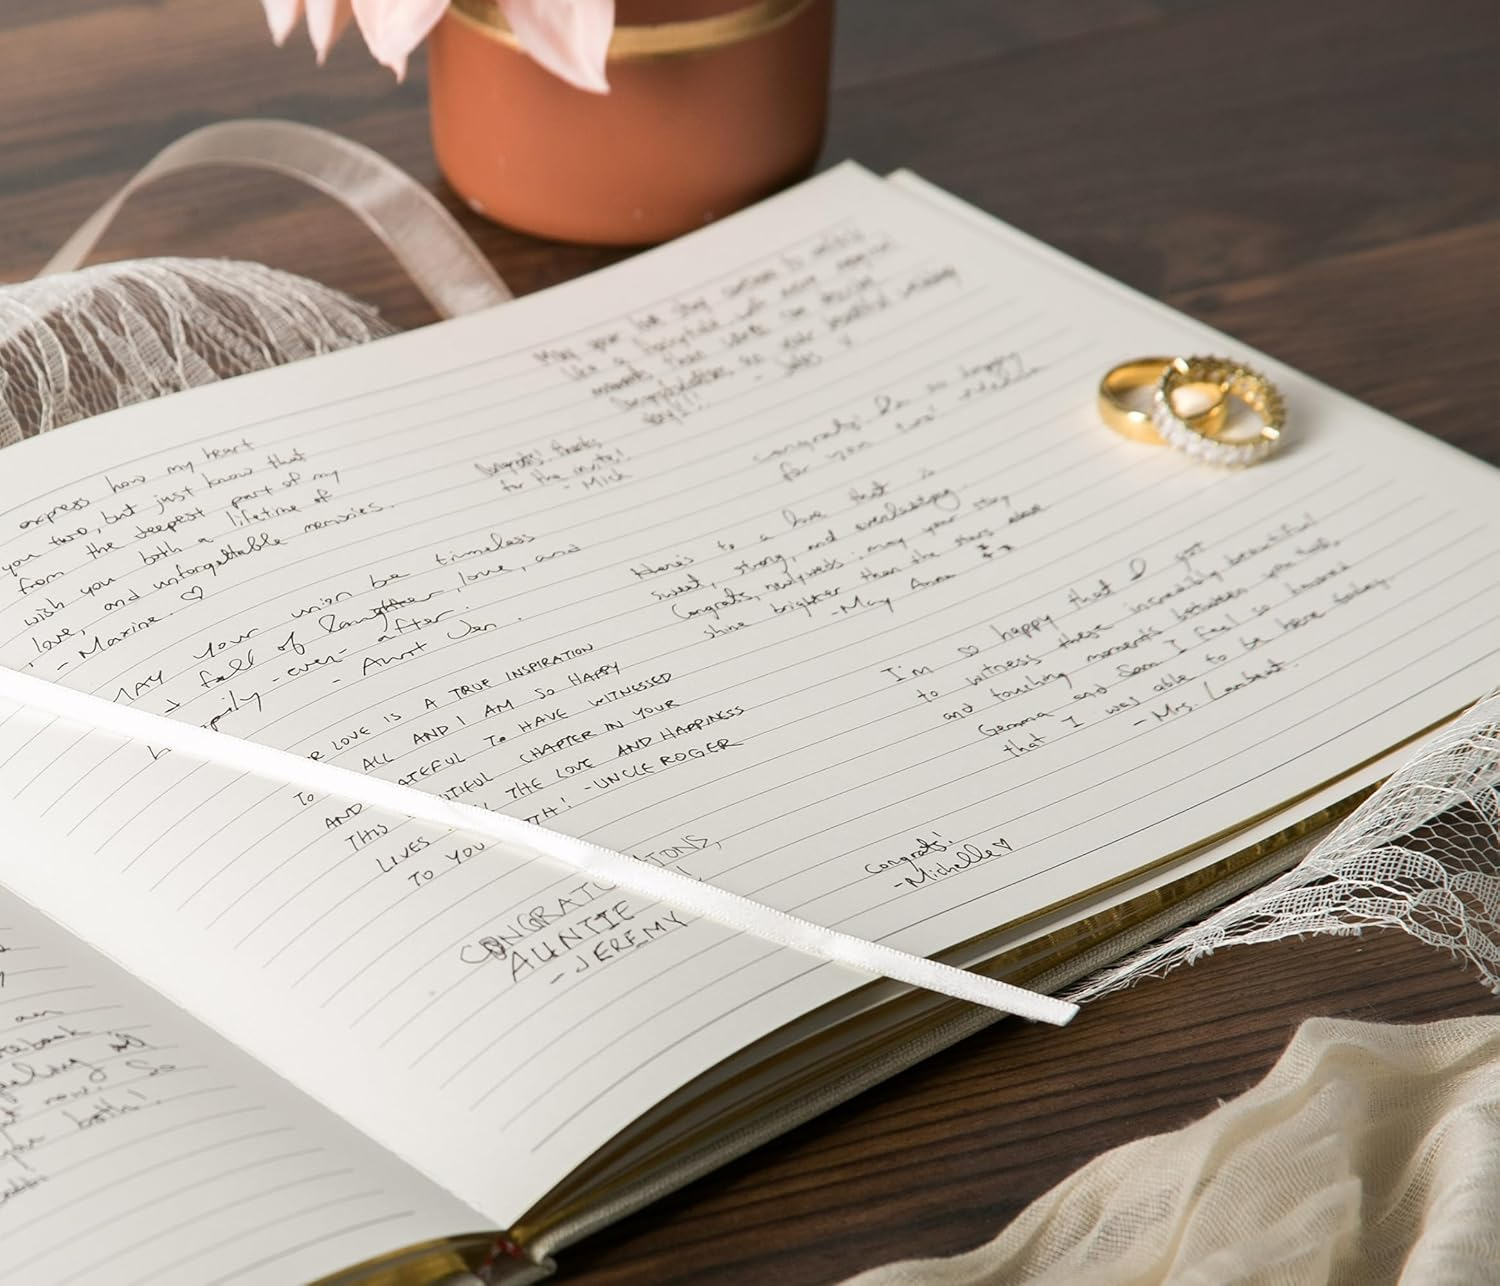 May your love stay
like a fairytale with more magical
moments that
Congratulations on your beautiful wedding
day!!!
Congrats! thanks
for the invite!
- Mich
congrats! I'm so happy
for you two!
express how my heart
you two, but just know that
from the deepest part of my
wish you both a lifetime of
love, and unforgettable memories.
- Maxine ♡
MAY your union be timeless
full of laughter, love, and
happily-ever-after.
- Aunt Jen
Here's to a love that is
sweet, strong, and everlasting.
Congrats, newlyweds. may your
shine brighter than the stars above
-May Anne
I'm so happy that I got
to witness these incredibly beautiful
and touching moments between you two.
Gemma and Sean I feel so honored
that I was able to be here today.
- Mrs. Lambert
R LOVE IS A TRUE INSPIRATION
TO ALL AND I AM SO HAPPY
AND ATEFUL TO HAVE WITNESSED
THIS UTIFUL CHAPTER IN YOUR
LIVES THE LOVE AND HAPPINESS
TO YOU TH! -UNCLE ROGER
CONGRATU TIONS,
AUNTIE
- JEREMY
Congrats!
-Michelle ♡
an
now! So
you both!